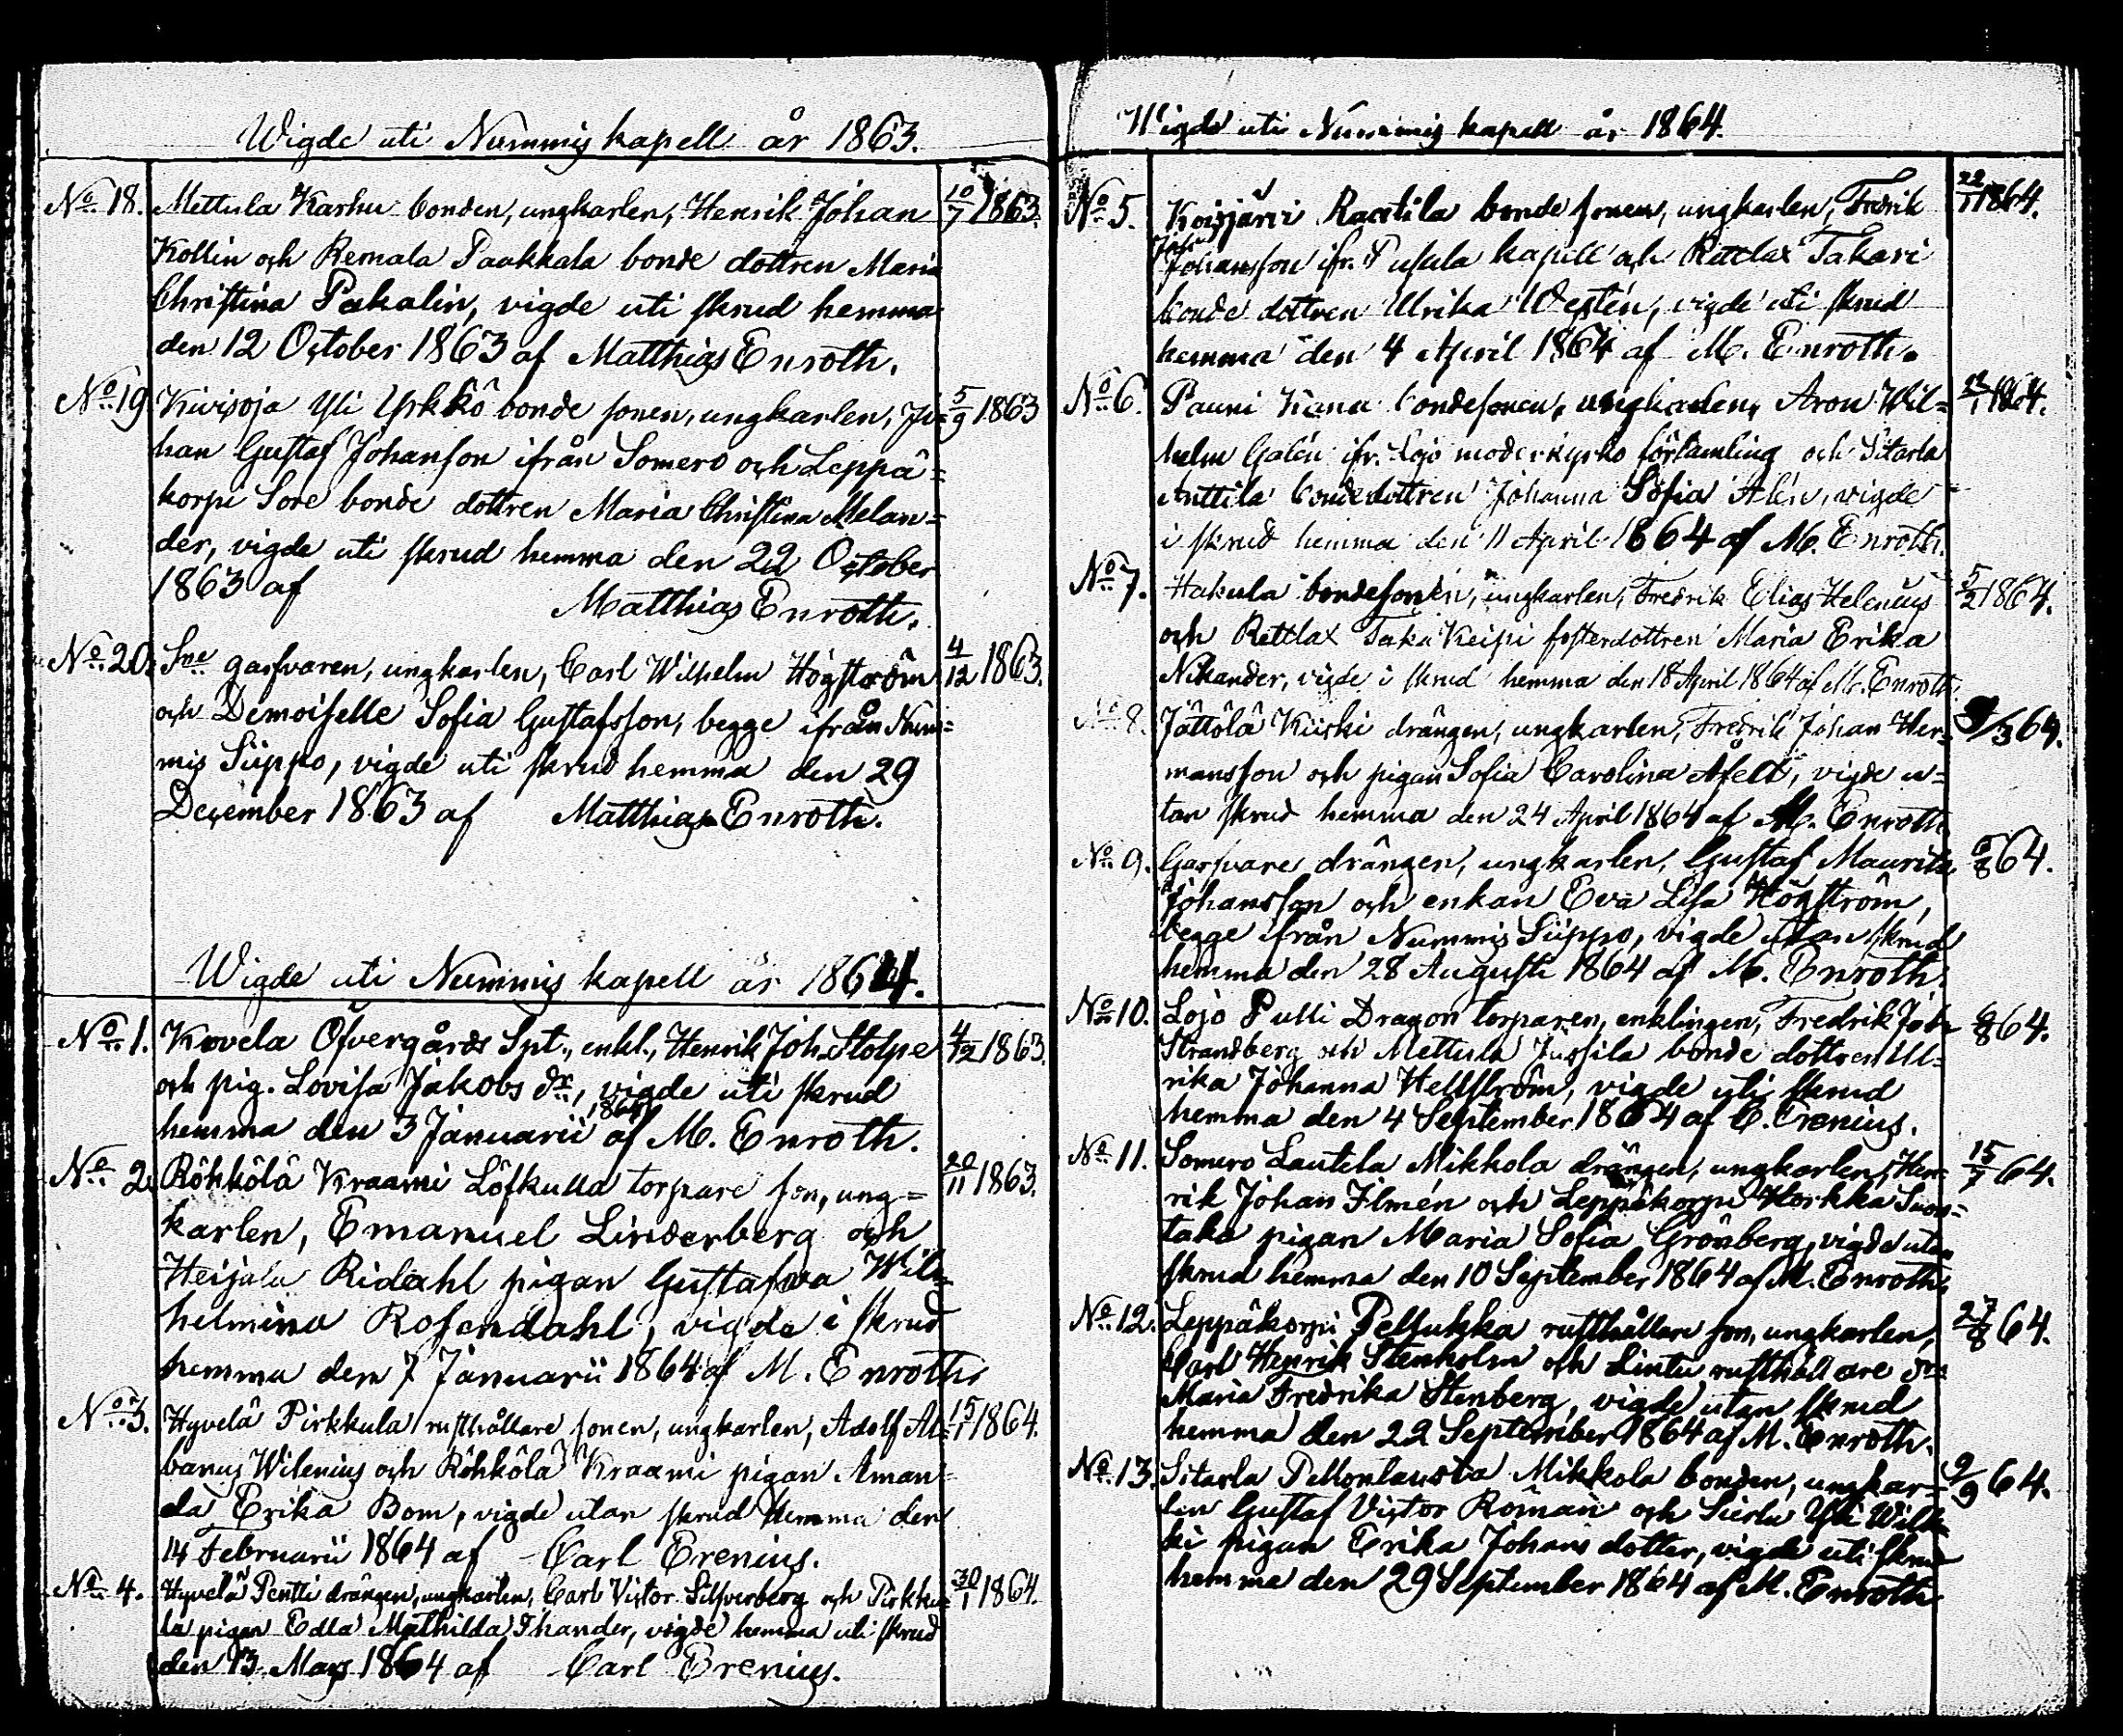 Wigde uti Nummis kapell år 1863.
No 18. Mettula Karhu bonden, ungkarlen, Henrik Johan 10/7 1863.
Kollin och Remala Paakkala bonde dottren Maria
Christina Pakalin, vigde uti skrud hemma
den 12 October 1863 af Matthias Enroth.
No 19 Kivisoja Yli Yrkkö bonde sonen, ungkarlen, Jo= 5/9 1863
han Gustaf Johanson ifrån Somero och Leppä=
korpi Sore bonde dottren Maria Christina Melan=
der, vigde uti skrud hemma den 22 October
1863 af Matthias Enroth.
No 20. garfvaren, ungkarlen, Carl Wilhelm Högström 4/12 1863.
och Demoiselle Sofia Gustafsson, begge ifrån Num=
mis Siippo, vigde uti skrud hemma den 29
December 1863 af Matthias Enroth.
Wigde uti Nummis kapell år 1864.
No 1. Kovela Öfvergårds Spt., enkl., Henrik Joh. Stolpe 4/12 1863.
och pig. Lovisa Jakobs dr, vigde uti skrud
hemma den 3 Januarii 1864 af M. Enroth.
No 2. Röhkölä Kraami Löfkulla torpare son, ung= 20/11 1863.
karlen, Emanuel Linderberg och
Heijala Ridahl pigan Gustafva Wil=
helmina Rosendahl, vigde i skrud
hemma den 7 Januarii 1864 af M. Enroth.
No 3. Hyvelä Pirkkula rusthållare sonen, ungkarlen, Adolf Al= 15/1 1864.
banus Wilenius och Röhkölä Kraami pigan Aman=
da Erika Bom, vigde utan skrud hemma den
14 Februarii 1864 af Carl Erenius.
No 4. Hyvelä Pentti drängen, ungkarlen, Carl Victor Silfverberg och Pirkku= 30/1 1864.
la pigan Edla Mathilda Ihander, vigde hemma uti skrud
den 13 Mars 1864 af Carl Erenius.
Wigde uti Nummis kapell år 1864.
No 5. Koisjärvi Raatila bonde sonen, ungkarlen, Fredrik 22/1 1864.
Johansson ifr. Pusula kapell och Rettlax Takari
bonde dottren Ulrika Westén, vigde uti skrud
hemma den 4 April 1864 af M. Enroth.
No 6. Pauni Kana bondesonen, ungkarlen, Aron Wil= 1864.
helm Galén ifr. Lojo moderkyrko församling och Sitarla
Anttila bondedottren Johanna Sofia Alén, vigde
i skrud hemma den 11 April 1864 af M. Enroth.
No 7. Hakula bondesonen, ungkarlen, Fredrik Elias Helenius 5/2 1864.
och Rettlax Taka Keipi fosterdottren Maria Erika
Nikander, vigde i skrud hemma den 18 April 1864 af M. Enroth.
No 8. Jättölä Kiiski drängen, ungkarlen, Fredrik Johan Her=
mansson och pigan Sofia Carolina Åfelt, vigde u=
tan skrud hemma den 24 April 1864 af M. Enroth.
No 9. Garfvare drängen, ungkarlen, Gustaf Mauritz 64.
Johansson och enkan Eva Lisa Högström,
begge ifrån Nummis Siippo, vigde utan skrud
hemma den 28 Augusti 1864 af M. Enroth.
No 10. Lojo Pulli Dragon torparen, enklingen, Fredrik Joh. 6/8 64.
Strandberg och Mettula Jussila bonde dottren Ul=
rika Johanna Hellström, vigde uti skrud
hemma den 4 September 1864 af C. Erenius.
No 11. Somero Lautela Mikkola drängen, ungkarlen, Hen= 15/7 64.
rik Johan Ilmén och Leppäkorpi Horkka Suon=
taka pigan Maria Sofia Grönberg, vigde utan
skrud hemma den 10 September 1864 af M. Enroth.
No 12. Leppäkorpi Pellukka rusthållare son, ungkarlen, 27/8 64.
Carl Henrik Stenholm och Lintu rusthållare
Maria Fredrika Stenberg, vigde utan skrud
hemma den 22 September 1864 af M. Enroth.
No 13. Sitarla Pellonlausta Mikkola bonden, ungkar= 9/9 64.
len Gustaf Victor Röman och Sierla Yli Wilk=
ki pigan Erika Johans dotter, vigde uti skrud
hemma den 29 September 1864 af M. Enroth